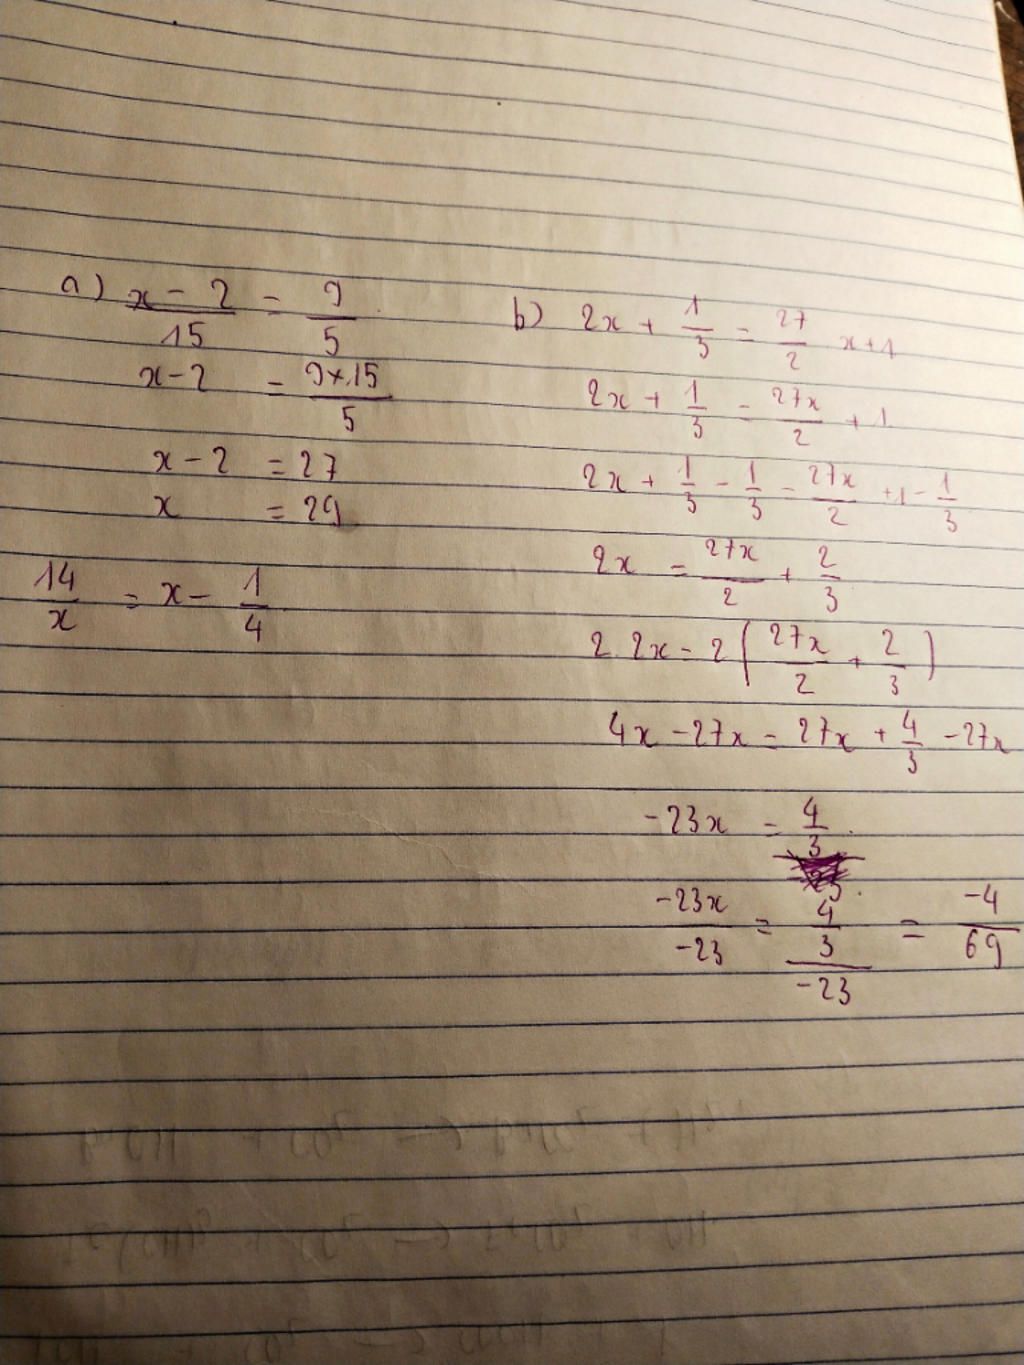 a) x - 2 / 15 = 9 / 5
x - 2 = 9 × 15 / 5
x - 2 = 27
x = 29
14 / x = x - 1 / 4
b) 2x + 1/3 = 27/2 x + 1
2x + 1/3 = 27x/2 + 1
2x + 1/3 - 1/3 = 27x/2 + 1 - 1/3
2x = 27x/2 + 2/3
2 2x = 2 ( 27x/2 + 2/3 )
4x - 27x = 27x + 4/3 - 27x
-23x = 4/3
-23x / -23 = 4/3 / -23 = -4 / 69